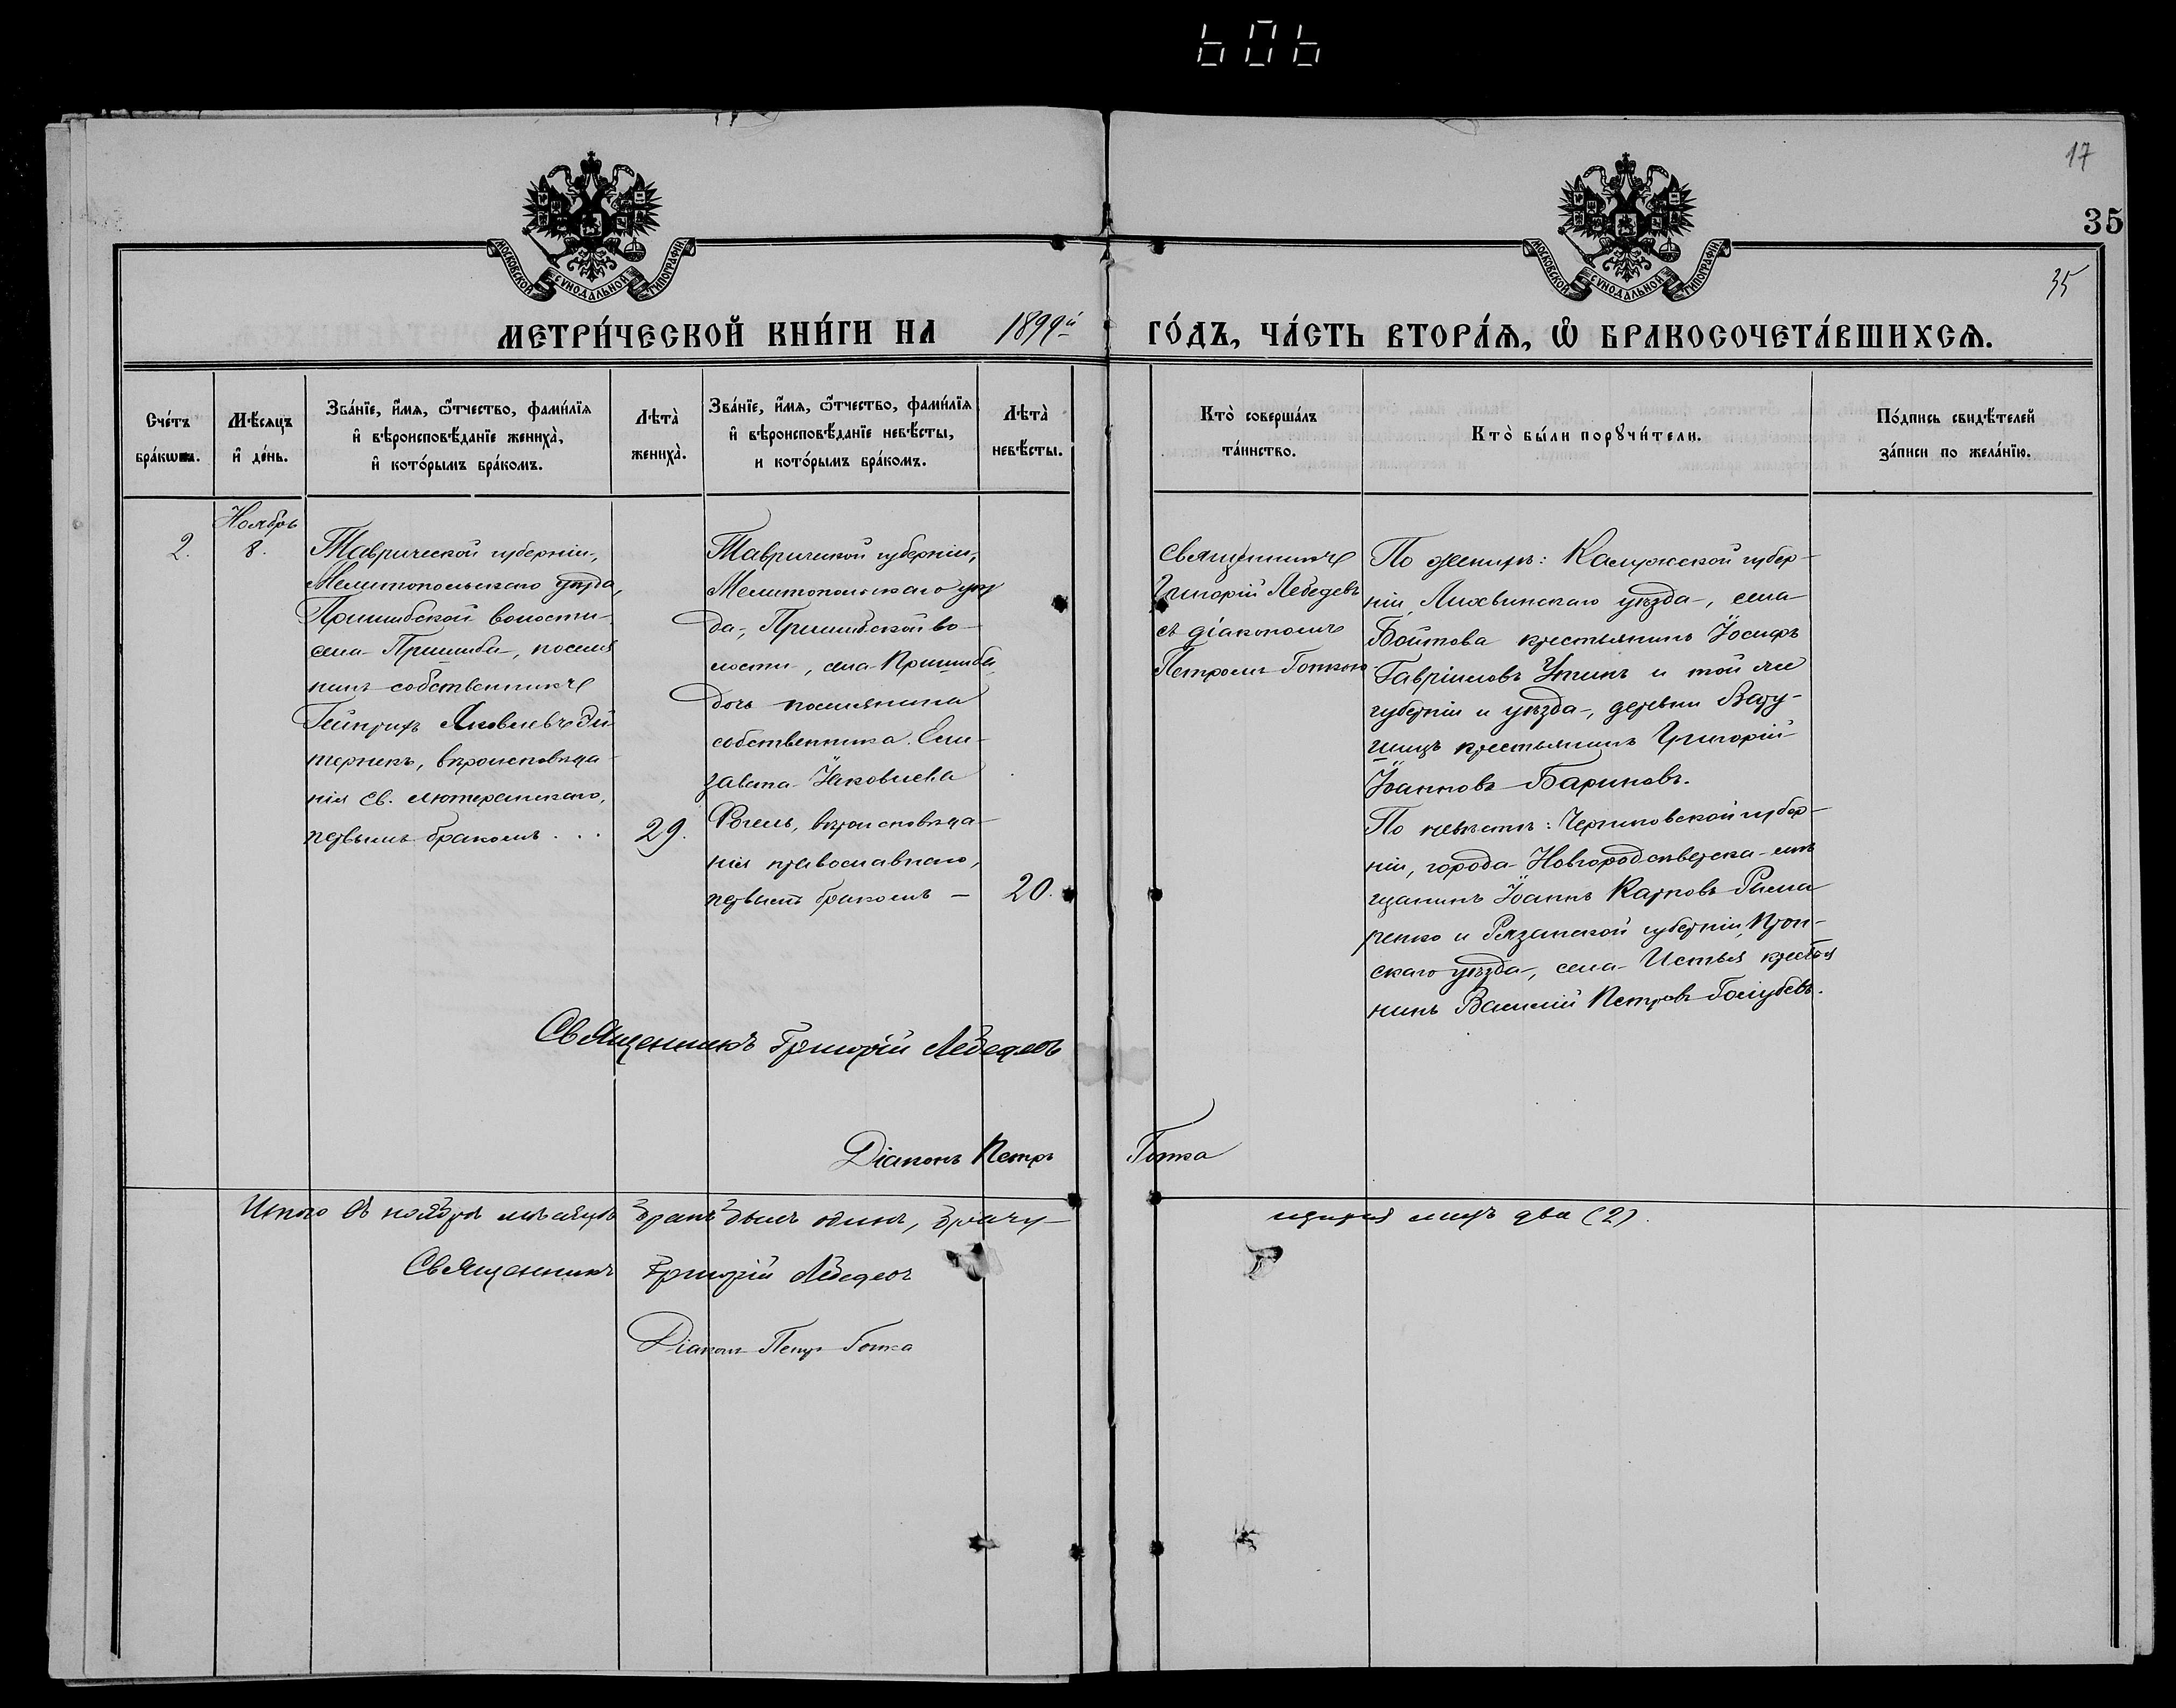 606
17
35
35
МОСКОВСКОЙ СѴНОДАЛЬНОЙ ТИПОГРАФІИ
МОСКОВСКОЙ СѴНОДАЛЬНОЙ ТИПОГРАФІИ
МЕТРИ́ЧЕСКОЙ КНИ́ГИ НА 1899й ГО́ДЪ, ЧА́СТЬ ВТОРА́Ѧ, Ѽ БРАКОСОЧЕТА́ВШИХСѦ.
Сче́тъ
бра́кωвъ.
Мѣ́сяцъ
и҆ де́нь.
Зва́нїе, и҆́мѧ, ѻ҆́тчество, фами́лїѧ
и҆ вѣроисповѣ́данїе жениха̀,
и҆ кото́рымъ бра́комъ.
Лѣта̀
жениха̀.
Зва́нїе, и҆́мѧ, ѻ҆́тчество, фами́лїѧ
и҆ вѣроисповѣ́данїе невѣ́сты,
и кото́рымъ бра́комъ.
Лѣта̀
невѣ́сты.
Кто̀ соверша́лъ
та́инство.
Кто̀ бы́ли порꙋчи́тели.
По́дпись свидѣ́телей
за́писи по жела́нїю.
2.
Ноябрь
8.
Таврической губерніи,
Мелитопольскаго уѣзда,
Пришибской волости
села Пришиба, поселя
нинъ собственникъ
Гейнрихъ Яковлевъ Ди
терлекъ, вѣроисповѣда
нія ев. лютеранскаго,
первымъ бракомъ . . .
29.
Таврической губерніи,
Мелитопольскаго уѣз
да, Пришибской во
лости, села Пришиба
дочь поселянина
собственника Ели
завета Іаковлева
Фогель, вѣроисповѣда
нія православнаго,
первымъ бракомъ —
20.
Священникъ
Григорій Лебедевъ
съ діакономъ
Петромъ Готкою
По женихѣ: Калужской губер-
ніи, Лихвинскаго уѣзда, села
Войтова крестьянинъ Іосифъ
Гавріиловъ Уткинъ и той же
губерніи и уѣзда, деревни
крестьянинъ Григорій
Іоанновъ Бариновъ.
По невѣстѣ: Черниговской губер-
ніи, города Новгородсѣверска мѣ
щанинъ Іоаннъ Карповъ Рыма
ренко и Рязанской губерніи, Прон-
скаго уѣзда, села Истья крестья
нинъ Василій Петровъ Голубевъ.
Священникъ Григорій Лебедевъ
Діаконъ Петръ Готка
Итого въ ноябрѣ мѣсяцѣ бракъ былъ одинъ, брачу-ющихся лицъ два (2).
Священникъ Григорій Лебедевъ
Діаконъ Петръ Готка